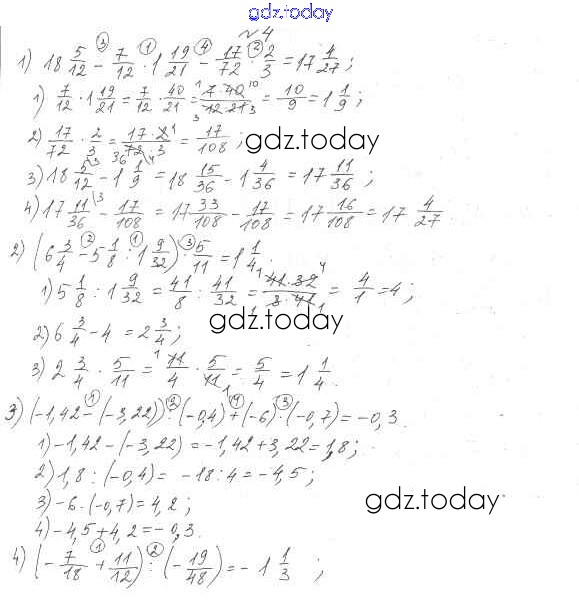 gdz.today
№4
1) 18 5/12 − 7/12 · 1 19/21 − 17/72 · 2/3 = 17 4/27;
1) 7/12 · 1 19/21 = 7/12 · 40/21 = 7·40/12·21 = 10/9 = 1 1/9;
2) 17/72 · 2/3 = 17·2/72·3 = 17/108;
gdz.today
3) 18 5/12 − 1 1/9 = 18 15/36 − 1 4/36 = 17 11/36;
4) 17 11/36 − 17/108 = 17 33/108 − 17/108 = 17 16/108 = 17 4/27.
2) (6 3/4 − 5 1/8 : 1 9/32) · 5/11 = 1 1/4
1) 5 1/8 : 1 9/32 = 41/8 : 41/32 = 41·32/8·41 = 4/1 = 4;
gdz.today
2) 6 3/4 − 4 = 2 3/4;
3) 2 3/4 · 5/11 = 11/4 · 5/11 = 5/4 = 1 1/4.
3) (−1,42 − (−3,22)) : (−0,4) + (−6) · (−0,7) = −0,3.
1) −1,42 − (−3,22) = −1,42 + 3,22 = 1,8;
2) 1,8 : (−0,4) = −18 : 4 = −4,5;
3) −6 · (−0,7) = 4,2;
gdz.today
4) −4,5 + 4,2 = −0,3.
4) (−7/18 + 11/12) : (−19/48) = −1 1/3;